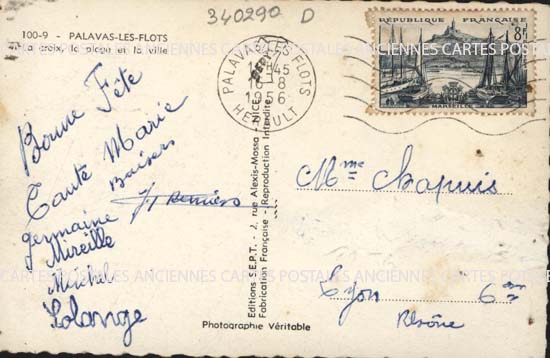 340290 D
100-9 - PALAVAS-LES-FLOTS
La croix, la plage et la ville
Bonne Fête
Tante Marie
Baisers
germaine
Mireille
Michel
Solange
PALAVAS-LES-FLOTS
45
16-8
1956
HERAULT
RÉPUBLIQUE FRANÇAISE
8F
MARSEILLE
Editions S.E.P.T. - 2, rue Alexis-Mossa - NICE
Fabrication Française - Reproduction Interdite
Photographie Véritable
Mme Chapuis
Lyon 6eme
Rhône
CARTES POSTALES ANCIENNES CARTES POSTALES ANCIENNES